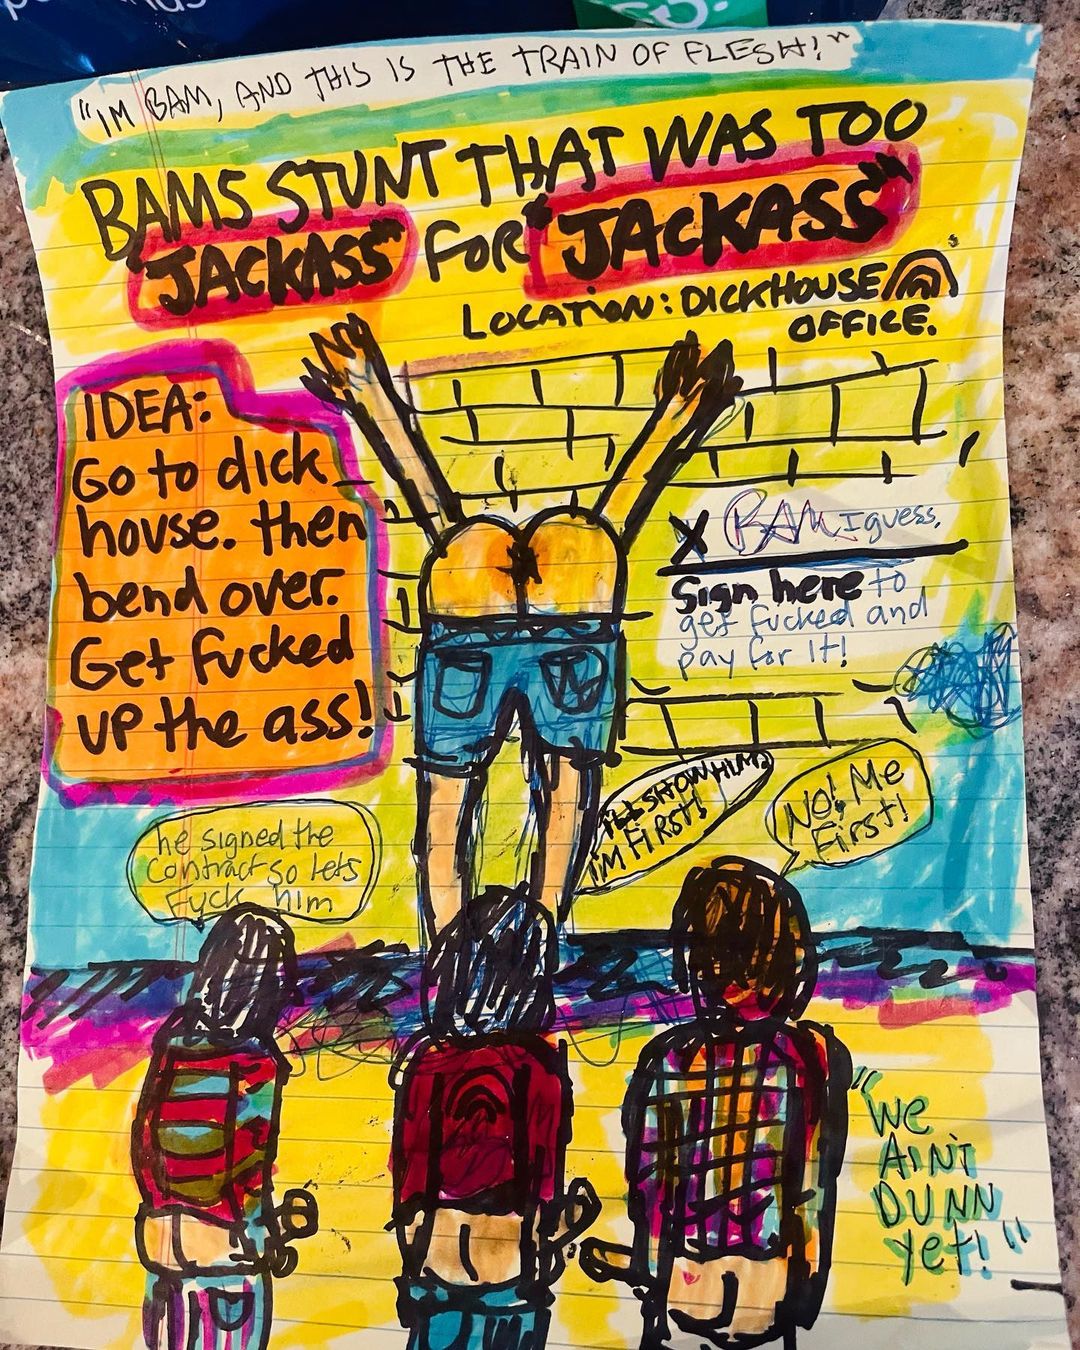 "IM BAM, AND THIS IS THE TRAIN OF FLESH!"
BAMS STUNT THAT WAS TOO
"JACKASS" FOR "JACKASS"
LOCATION: DICKHOUSE
OFFICE.
IDEA:
Go to dick
house. then
bend over.
Get fucked
up the ass!
X BAM I guess.
Sign here to
get fucked and
pay for it!
he signed the
contract so lets
fuck him
I'LL SHOW HIM
I'M FIRST!
NO! Me
First!
"We
AINT
DUNN
yet!"